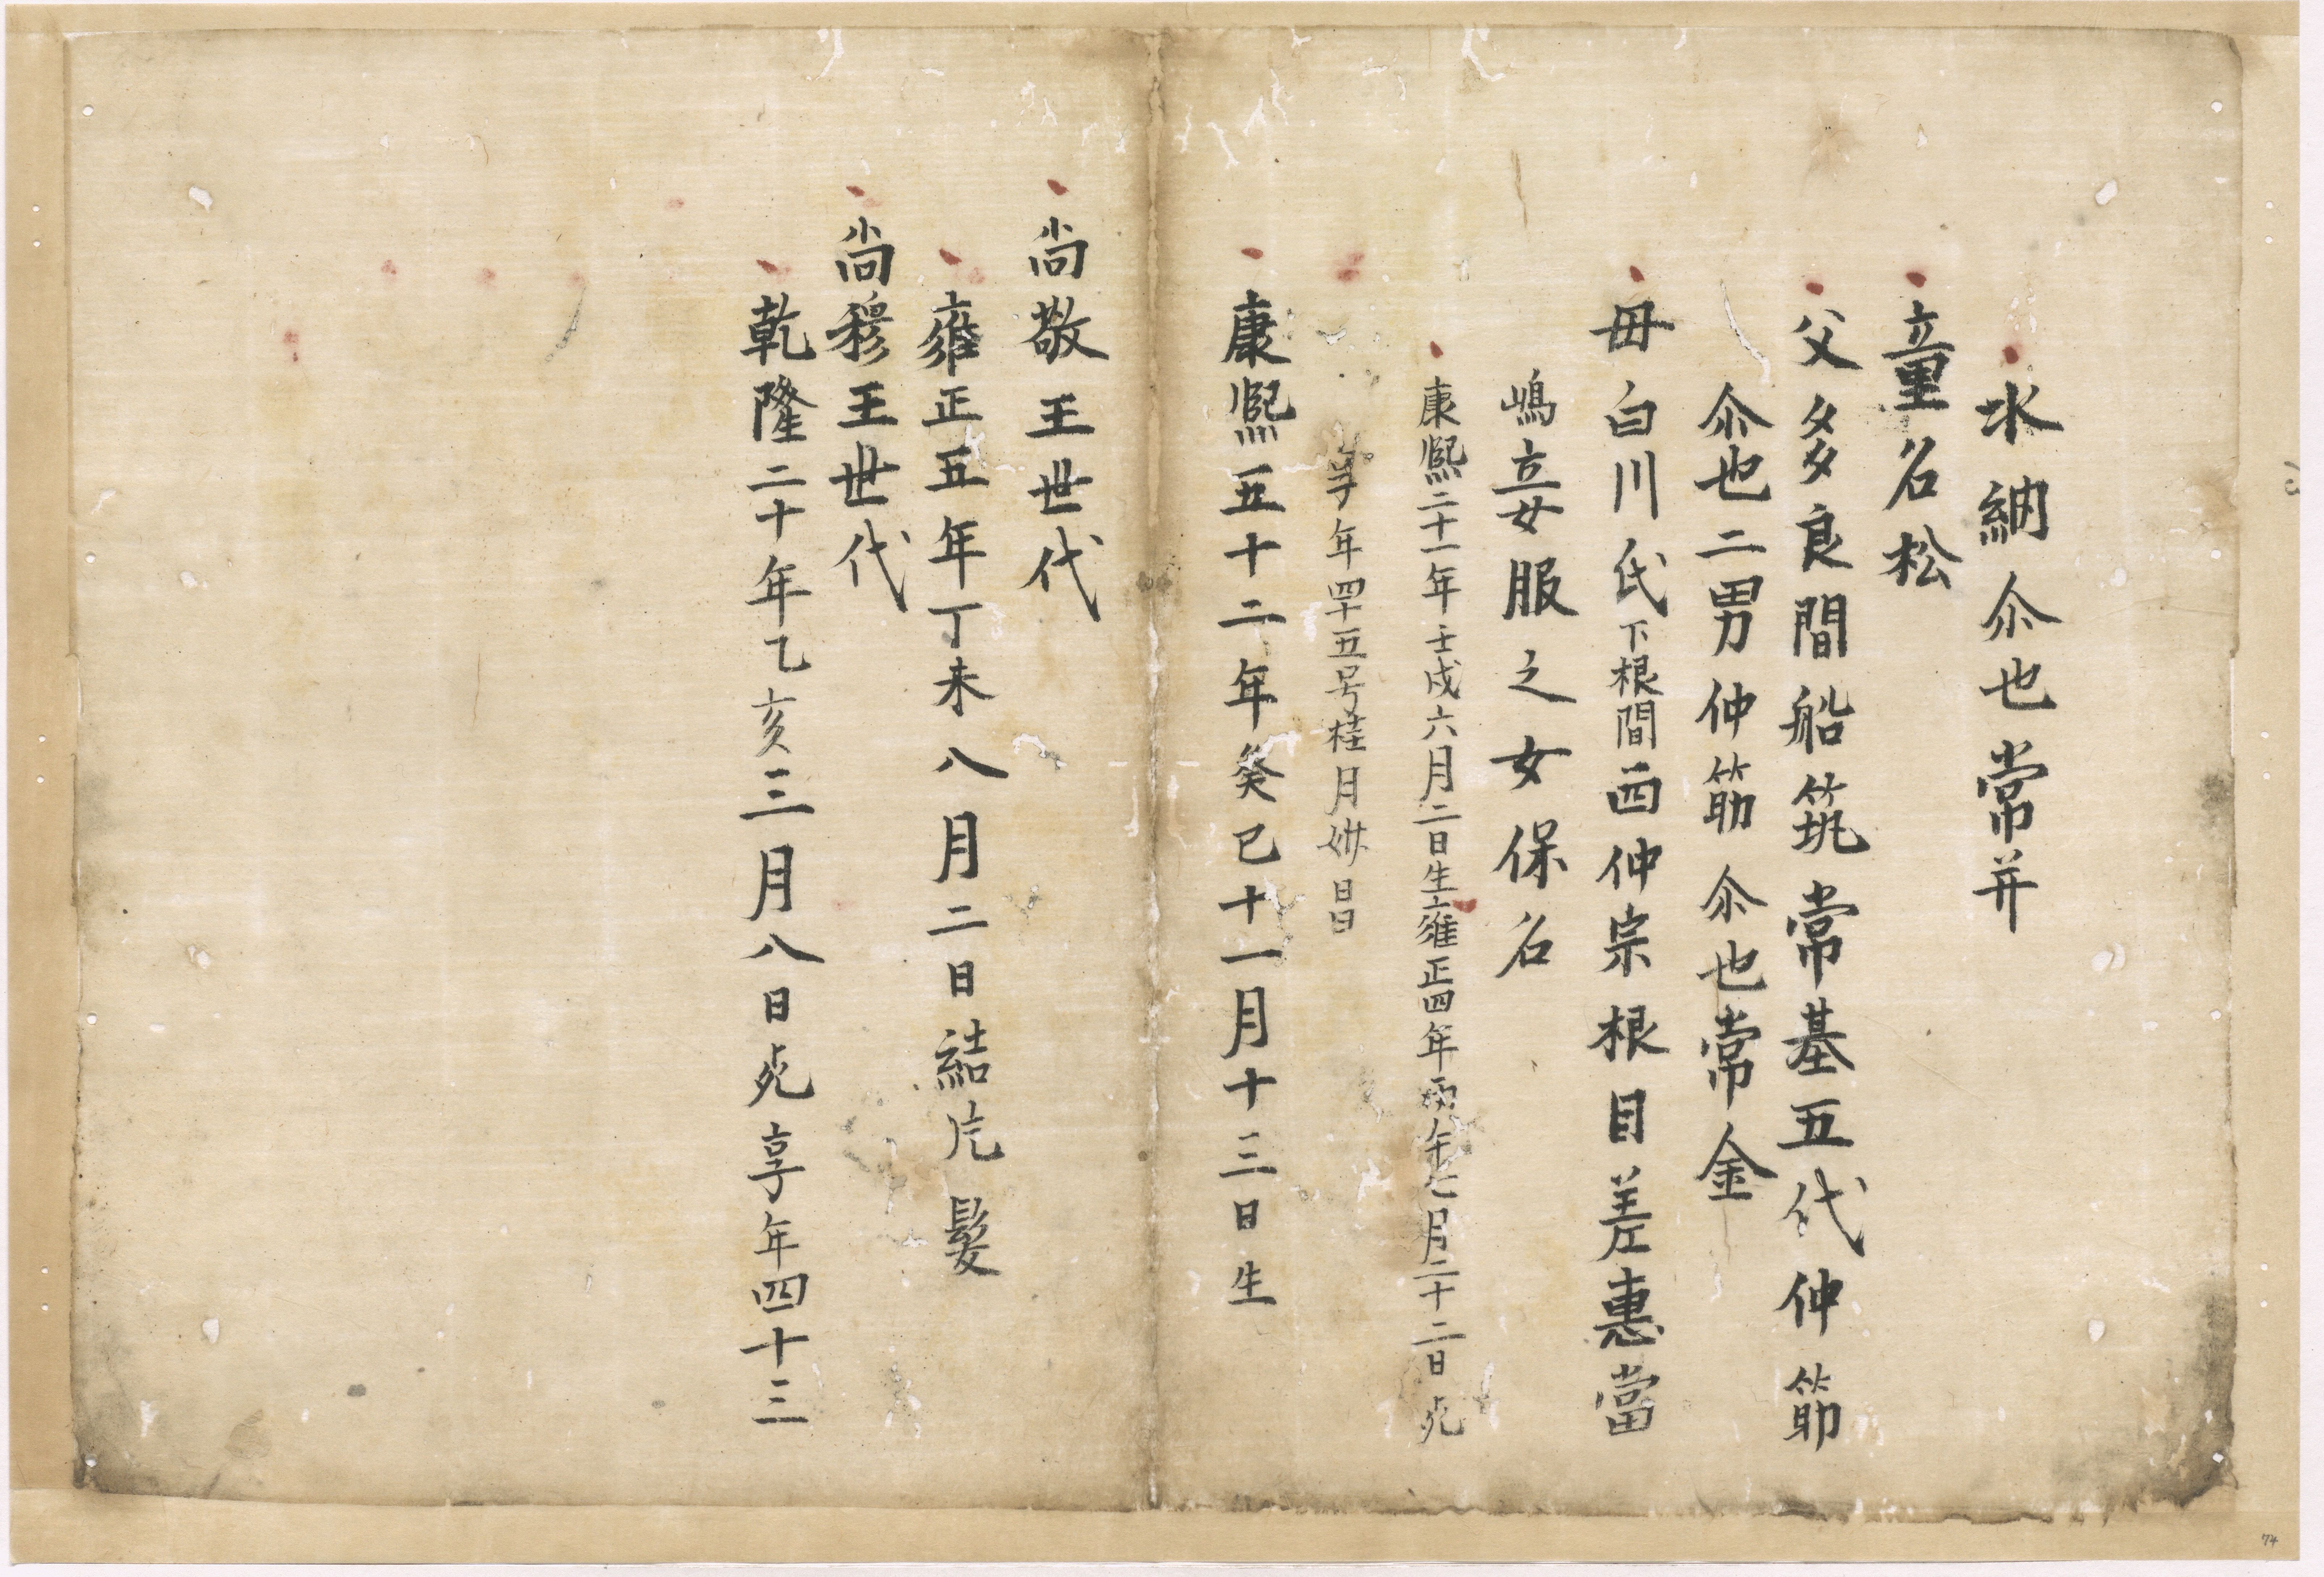 水納尒也常并
童名松
父多良間船筑常基五代仲筋
尒也二男仲筋尒也常金
母白川氏下根間西仲宗根目差惠當
嶋立妾服之女保名
康熙二十一年壬戌六月二日生雍正四年丙午七月二十二日死
享年四十五号桂月
康熙五十二年癸巳十一月十三日生
尚敬王世代
雍正五年丁未八月二日結片髮
尚穆王世代
乾隆二十年乙亥三月八日死享年四十三
74